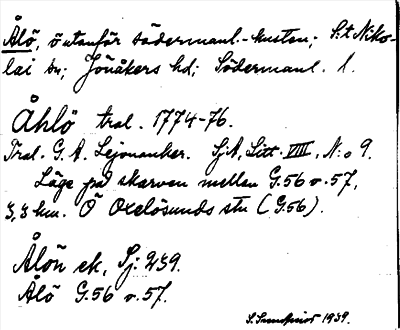 Ålö, ö utanför södermanl.-kusten; S:t Niko-
lai sn; Jönåkers hd; Södermanl. l.
Åhlö tral. 1774-76.
Tral. G. A. Lejonanker. SjA, Litt. VIII, N:o 9.
Läge på skarven mellan G.56 o. 57,
3,3 km. Ö Oxelösunds stn (G.56).
Ålön ek, Sj: 239.
Ålö G.56 o. 57.
1939.